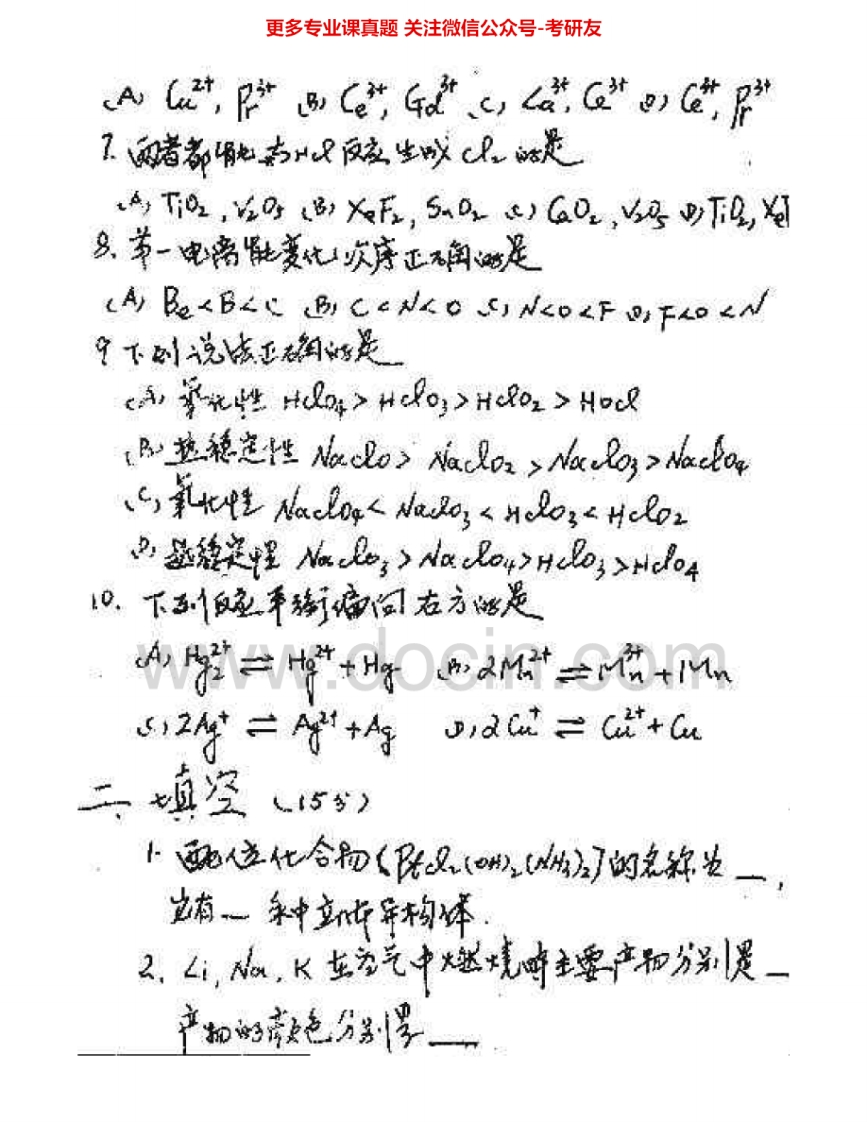 更多专业课真题 关注微信公众号-考研友
(A) Cu²⁺, Pr³⁺ (B) Ce³⁺, Gd³⁺ (C) La³⁺, Ce³⁺ (D) Ce⁴⁺, Pr³⁺
7. 两者都能与HCl反应生成Cl₂的是
(A) TiO₂, V₂O₅ (B) XeF₂, SnO₂ (C) CaO₂, V₂O₅ (D) TiO₂,
8. 第一电离能变化次序正确的是
(A) Be<B<C (B) C<N<O (C) N<O<F (D) F<O<N
9 下列说法正确的是
(A) 氧化性 HClO₄>HClO₃>HClO₂>HOCl
(B) 热稳定性 NaClO>NaClO₂>NaClO₃>NaClO₄
(C) 氧化性 NaClO₄<NaClO₃<HClO₃<HClO₂
(D) 热稳定性 NaClO₃>NaClO₄>HClO₃>HClO₄
10. 下列反应平衡偏向右方的是
(A) Hg₂²⁺ ⇌ Hg²⁺+Hg (B) 2Mn²⁺ ⇌ Mn³⁺+Mn
(C) 2Ag⁺ ⇌ Ag²⁺+Ag (D) 2Cu⁺ ⇌ Cu²⁺+Cu
www.docin.com
二 填空 (15分)
1. 配位化合物[PtCl₂(OH)₂(NH₃)₂]的名称为__,
它有__种立体异构体.
2. Li, Na, K 在空气中燃烧时主要产物分别是__
产物的颜色分别是__